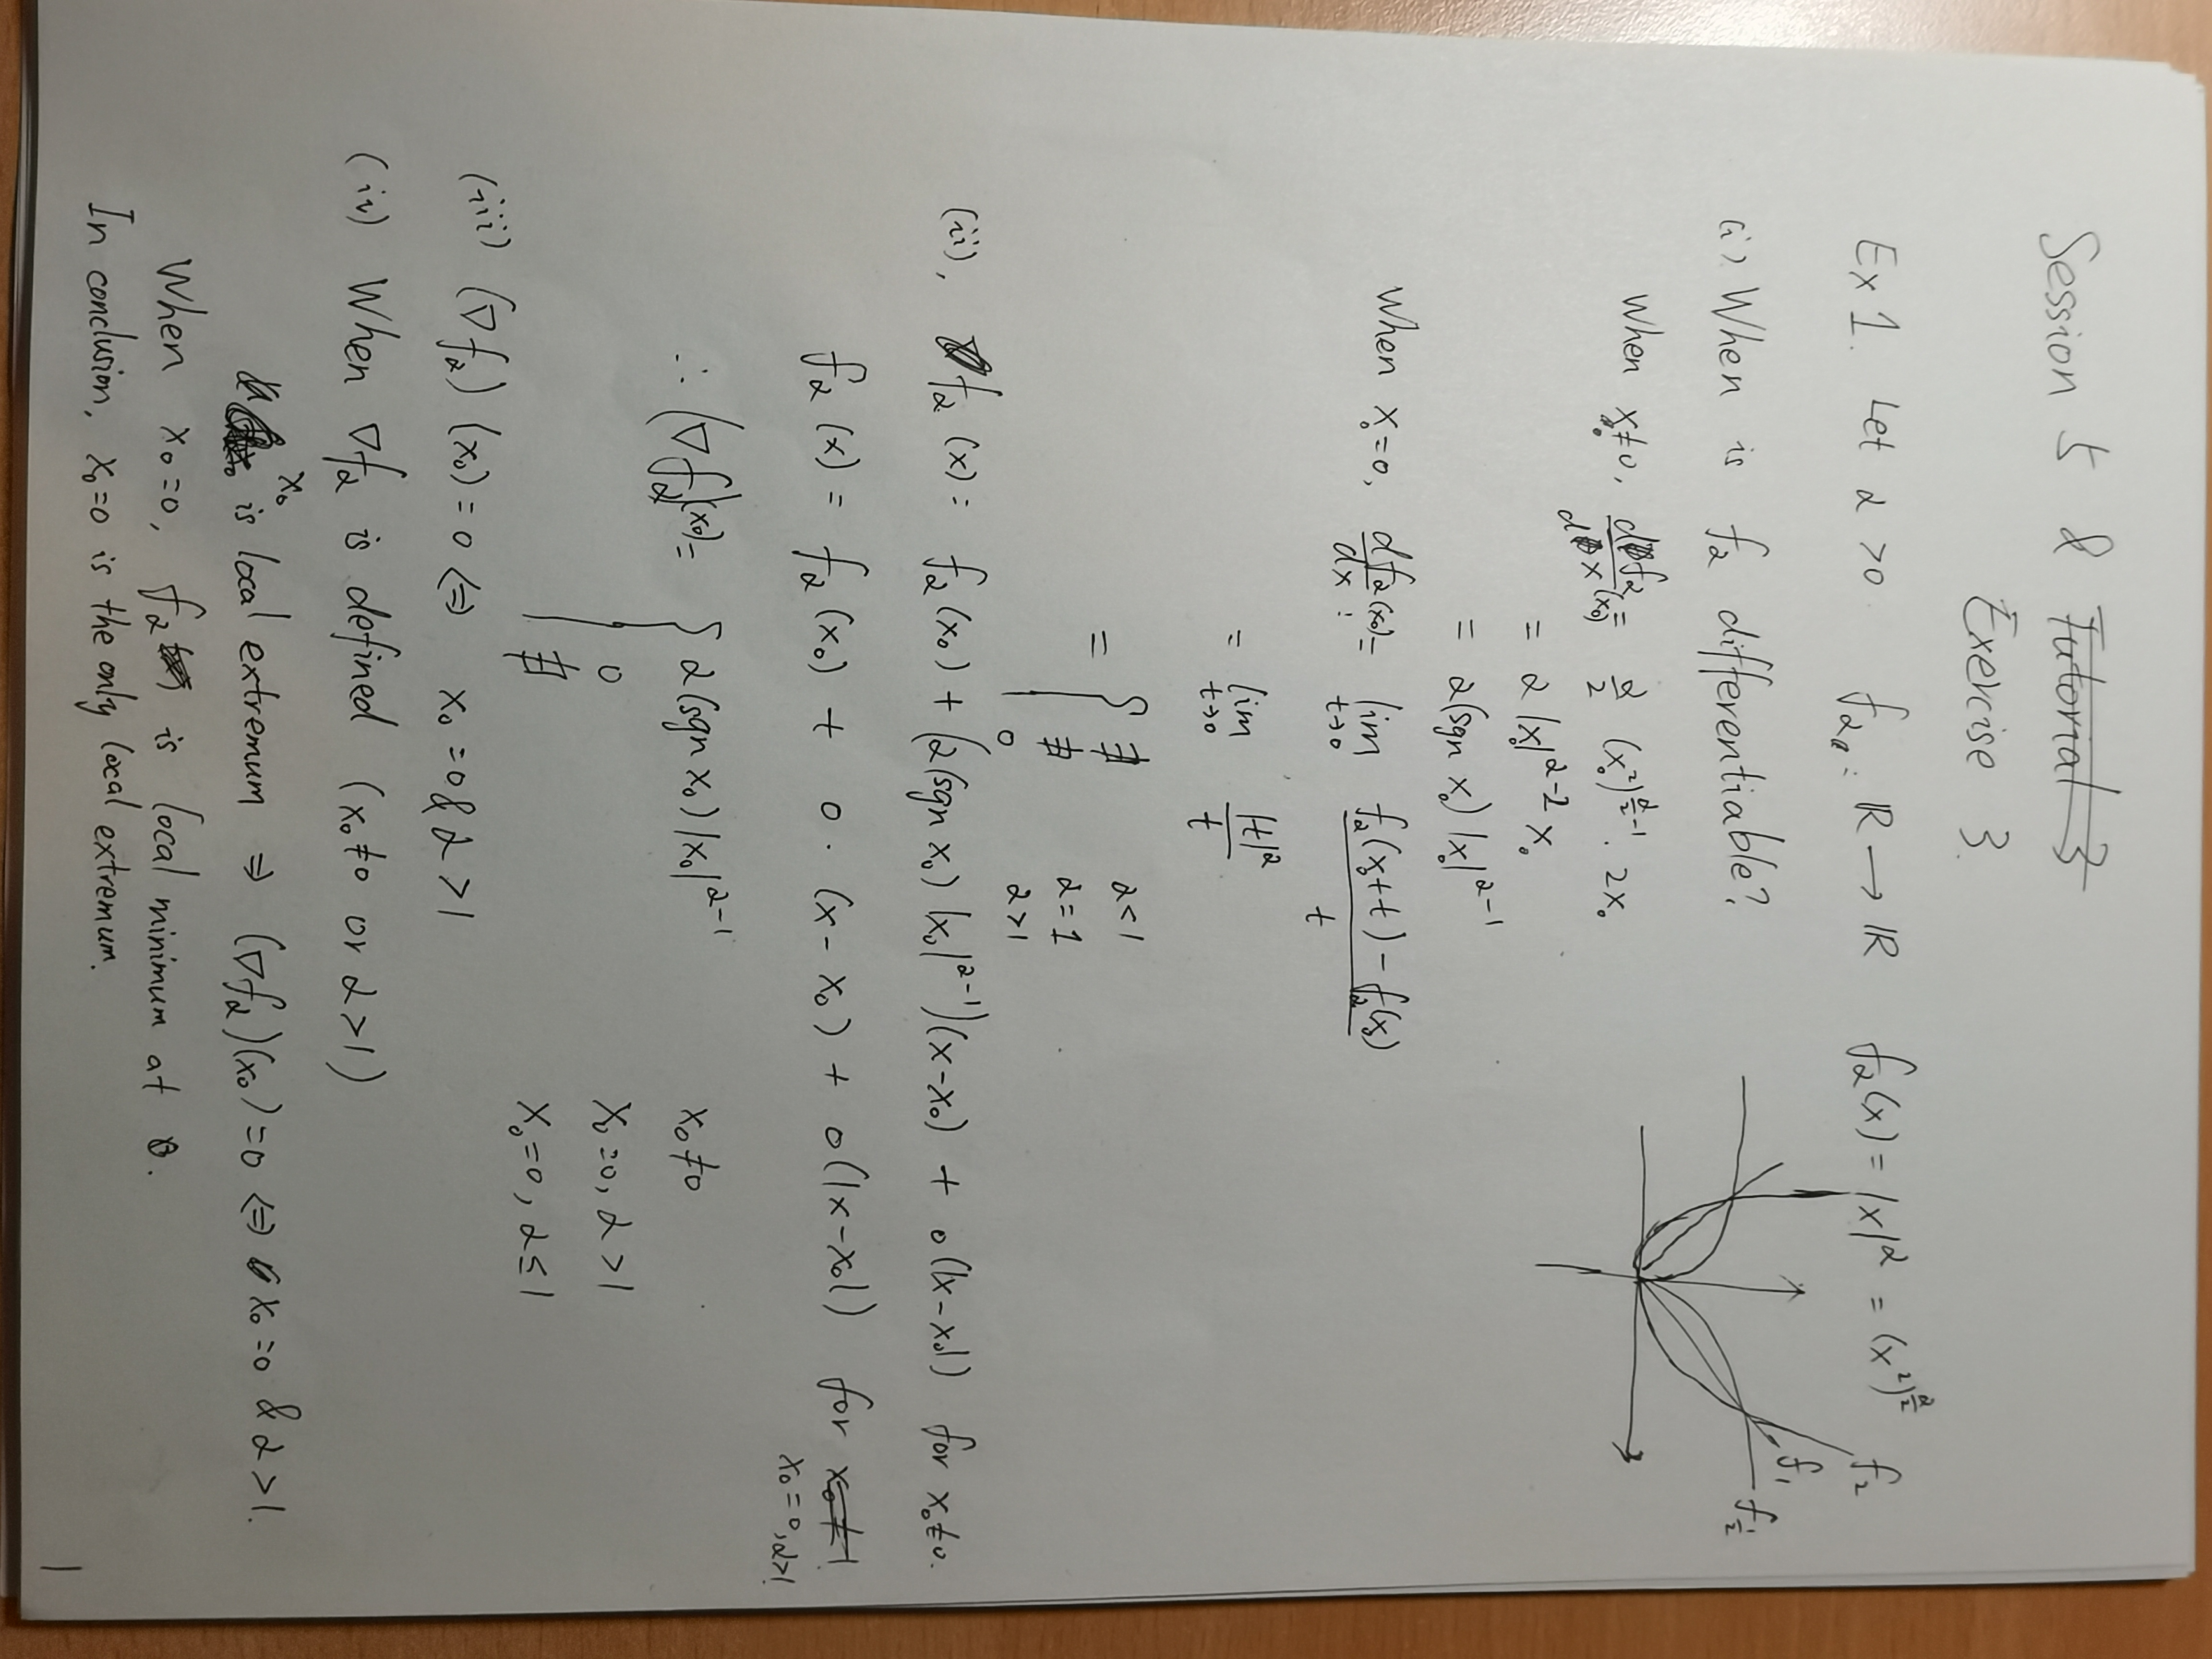 Session 5 & Tutorial 3
Exercise 3.
Ex 1. Let α > 0 f_α : ℝ → ℝ f_α(x) = |x|^α = (x²)^{α/2}
f_2
f_1
f_{1/2}
(i) When is f_α differentiable?
When x_0 ≠ 0, df_α/dx (x_0) = α/2 (x_0²)^{α/2 - 1} . 2x_0
= α |x_0|^{α-2} x_0
= α (sgn x_0) |x_0|^{α-1}
When x_0 = 0, df_α/dx (x_0) = lim_{t→0} (f_α(x_0+t) - f_α(x_0))/t
= lim_{t→0} |t|^α / t
= { ∄ α < 1
∄ α = 1
0 α > 1
(ii), f_α (x) = f_α (x_0) + (α (sgn x_0) |x_0|^{α-1})(x - x_0) + o(|x - x_0|) for x_0 ≠ 0.
f_α (x) = f_α (x_0) + 0 · (x - x_0) + o(|x - x_0|) for x_0 ≠ 1
x_0 = 0, α > 1.
∴ (∇f_α)(x_0) = { α (sgn x_0) |x_0|^{α-1} x_0 ≠ 0
0 x_0 = 0, α > 1
∄ x_0 = 0, α ≤ 1
(iii) (∇f_α) (x_0) = 0 ⇔ x_0 = 0 & α > 1
(iv) When ∇f_α is defined (x_0 ≠ 0 or α > 1)
x_0 is local extremum ⇒ (∇f_α)(x_0) = 0 ⇔ x_0 = 0 & α > 1.
When x_0 = 0, f_α is local minimum at 0.
In conclusion, x_0 = 0 is the only local extremum.
1